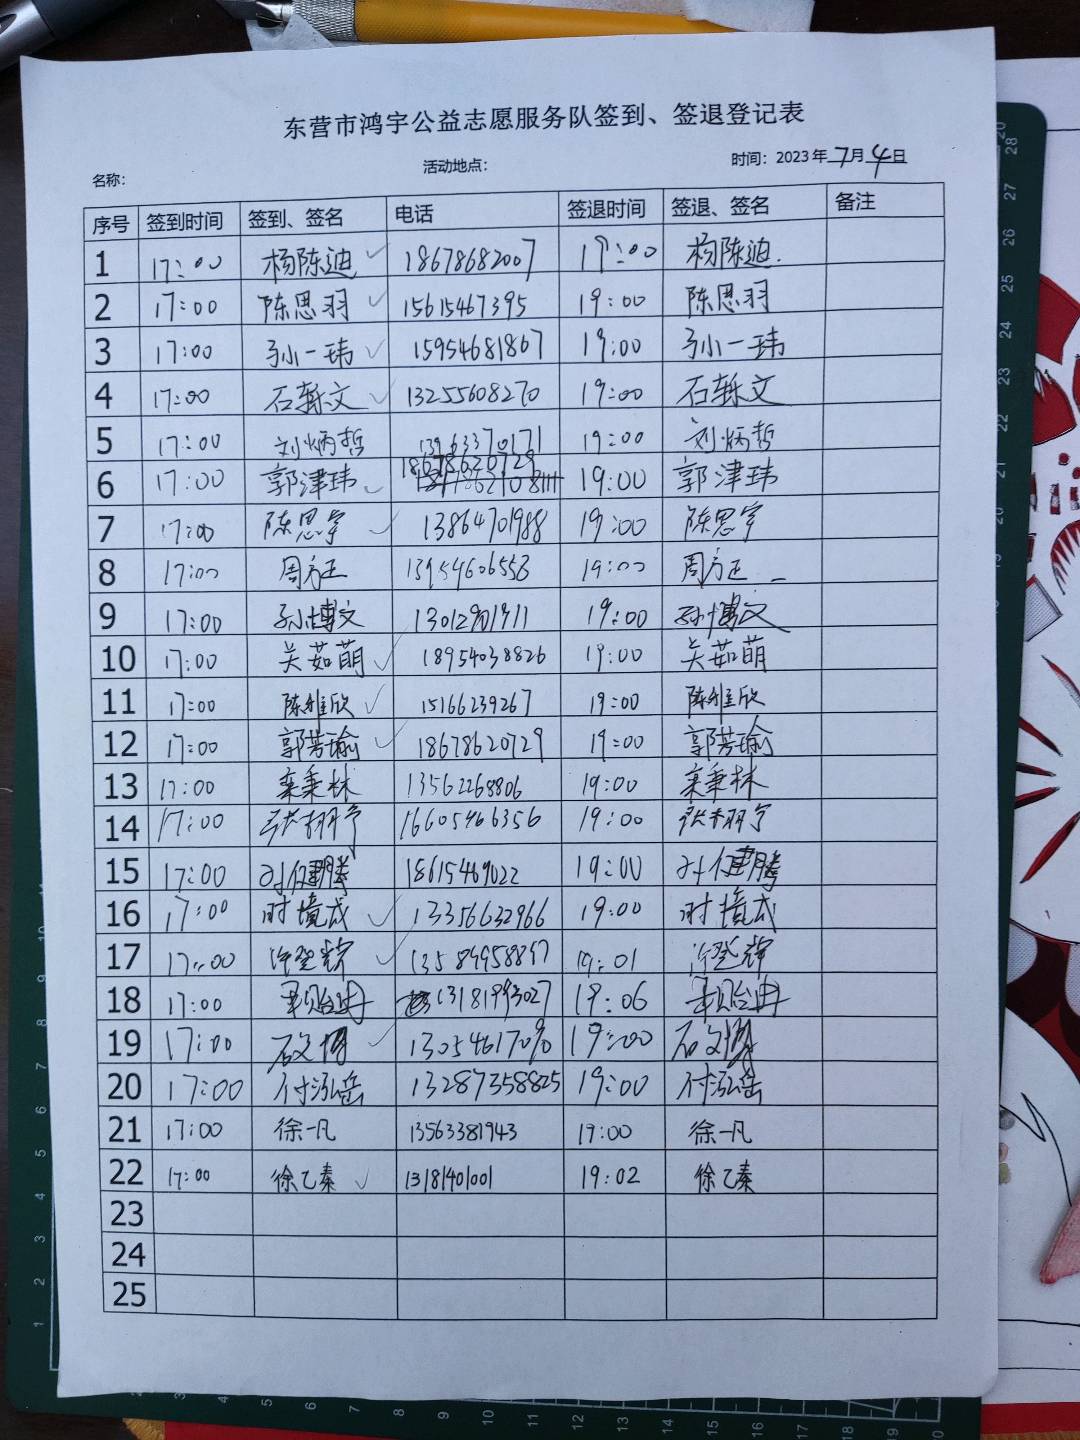 东营市鸿宇公益志愿服务队签到、签退登记表
名称： 活动地点： 时间：2023年7月4日
序号 签到时间 签到、签名 电话 签退时间 签退、签名 备注
1 17:00 杨陈迪 18678682007 19:00 杨陈迪.
2 17:00 陈思羽 15615467395 19:00 陈思羽
3 17:00 孙一玮 15954681867 19:00 孙一玮
4 17:00 石轹文 13255608270 19:00 石轹文
5 17:00 刘炳哲 13963370171 19:00 刘炳哲
6 17:00 郭津玮 18678620729 19:00 郭津玮
7 17:00 陈思宇 13864701988 19:00 陈思宇
8 17:00 周方正 13954606553 19:00 周方正
9 17:00 孙博文 19:00 孙博文
10 17:00 吴茹萌 18954038826 19:00 吴茹萌
11 17:00 陈雅欣 15166239267 19:00 陈雅欣
12 17:00 郭芳瑜 18678620729 19:00 郭芳瑜
13 17:00 栾秉林 13562268806 19:00 栾秉林
14 17:00 张栩宁 16605466356 19:00 张栩宁
15 17:00 刘健腾 18615469022 19:00 刘健腾
16 17:00 时境成 13356632966 19:00 时境成
17 17:00 许登辉 13589958857 19:01 许登辉
18 17:00 19:06
19 17:00 石文博 19:00 石文博
20 17:00 付泓岳 13287358825 19:00 付泓岳
21 17:00 徐一凡 13563381943 19:00 徐一凡
22 17:00 徐乙秦 13181401001 19:02 徐乙秦
23
24
25